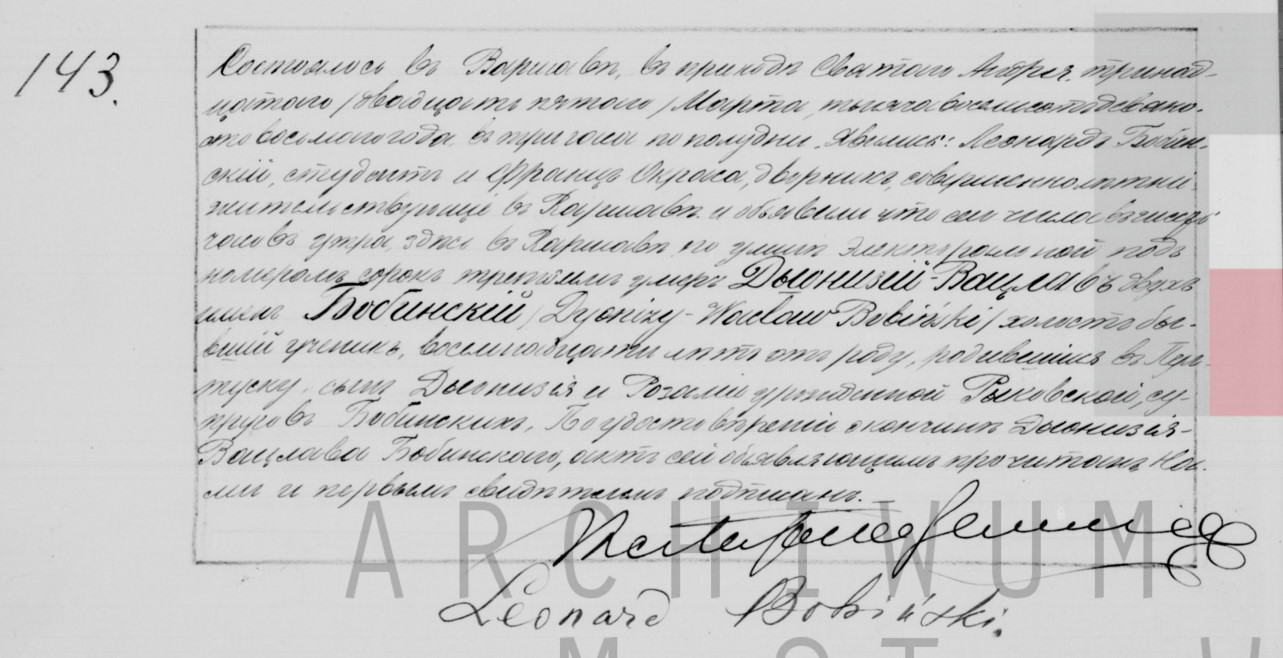 143.
Состоялось въ Варшавѣ, въ приходѣ Святаго Андрея тринад-
цатаго /двадцать пятаго/ Марта, тысяча восемьсотъ девяно-
сто восьмого года, въ три часа по полудни. Явились: Леонардъ Бобин-
скій, студентъ и Францъ Окраса, дворникъ, совершеннолѣтніе
жительствующіе въ Варшавѣ и объявили что сего числа въ
часовъ утра, здѣсь въ Варшавѣ по улицѣ Электоральной подъ
номеромъ сорокъ третьимъ умеръ Дыонизій-Вацлавъ двухъ
именъ Бобинскій /Dyonizy-Wacław Bobiński/ холостъ быв-
вшій ученикъ, восемнадцати лѣтъ отъ роду, родившійся въ Пул-
туску, сынъ Дыонизія и Розаліи урожденной Рыковской, су-
пруговъ Бобинскихъ. По удостовѣреніи о кончинѣ Дыонизія-
Вацлава Бобинскаго, актъ сей объявляющимъ прочитанъ На-
ми и первымъ свидѣтелемъ подписанъ.
Leonard Bobiński.
ARCHIWUM
M ST W